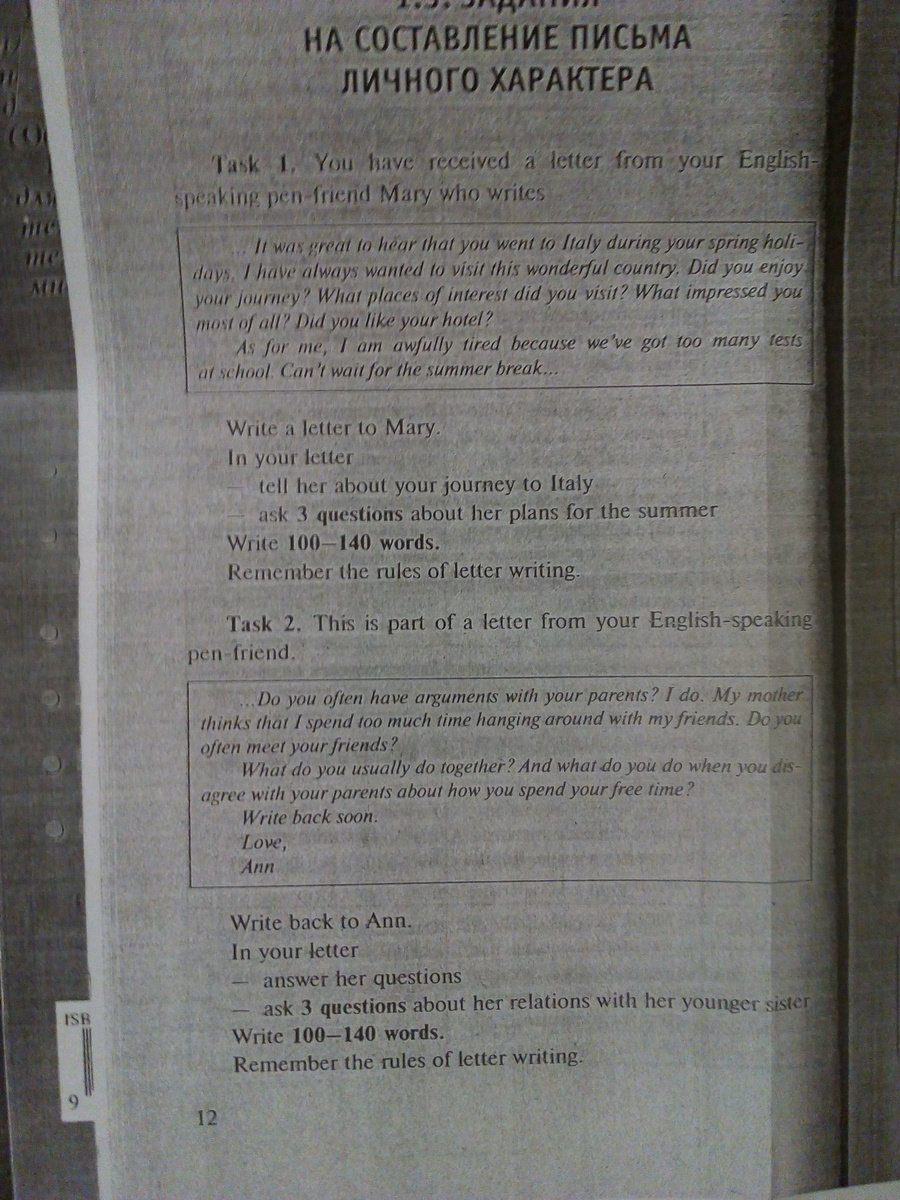 1.3. ЗАДАНИЯ
НА СОСТАВЛЕНИЕ ПИСЬМА
ЛИЧНОГО ХАРАКТЕРА
Task 1. You have received a letter from your English-
speaking pen-friend Mary who writes
... It was great to hear that you went to Italy during your spring holi-
days. I have always wanted to visit this wonderful country. Did you enjoy
your journey? What places of interest did you visit? What impressed you
most of all? Did you like your hotel?
As for me, I am awfully tired because we've got too many tests
at school. Can't wait for the summer break...
Write a letter to Mary.
In your letter
— tell her about your journey to Italy
— ask 3 questions about her plans for the summer
Write 100—140 words.
Remember the rules of letter writing.
Task 2. This is part of a letter from your English-speaking
pen-friend.
...Do you often have arguments with your parents? I do. My mother
thinks that I spend too much time hanging around with my friends. Do you
often meet your friends?
What do you usually do together? And what do you do when you dis-
agree with your parents about how you spend your free time?
Write back soon.
Love,
Ann
Write back to Ann.
In your letter
— answer her questions
— ask 3 questions about her relations with her younger sister
Write 100—140 words.
Remember the rules of letter writing.
12
ISB
9